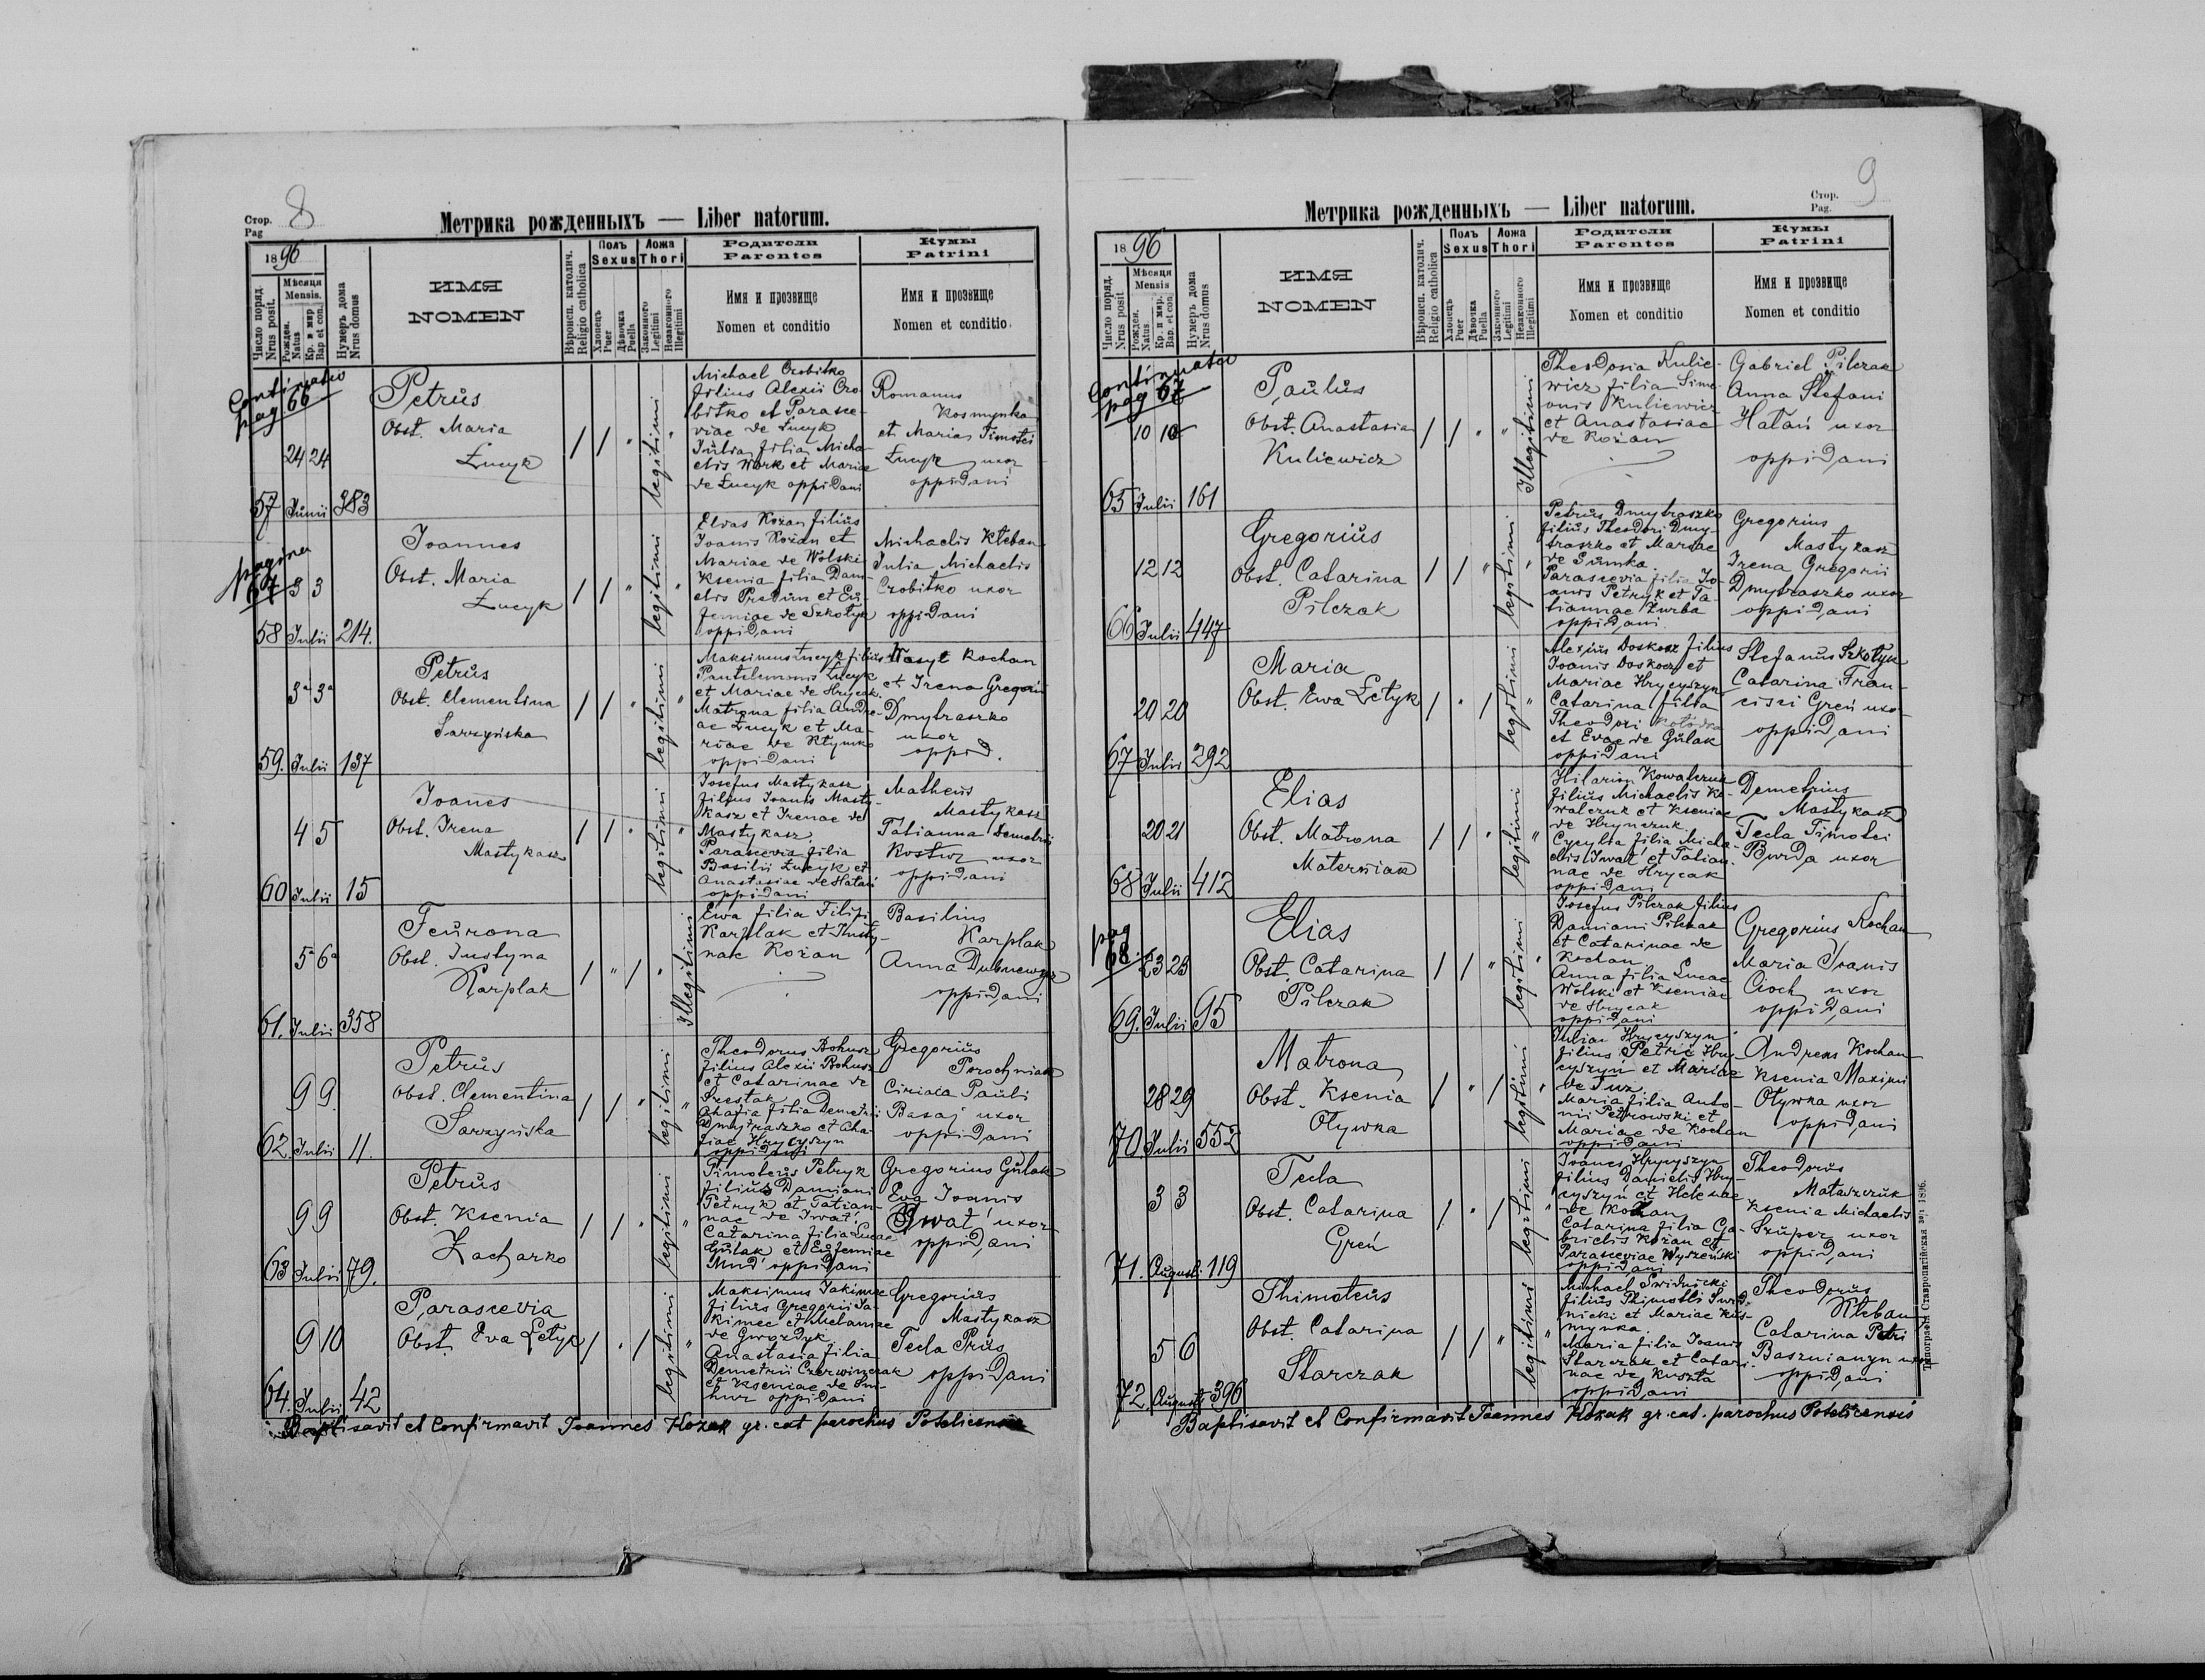 Стор.
Pag
8
Метрика рожденныхъ — Liber natorum.
1896
Число поряд.
Nrus posit.
Мѣсяця
Mensis.
Рожден.
Natus
Кр. и мир
Bap et con.
Нумеръ дома
Nrus domus
ИМЯ
NOMEN
Вѣроисп. католич.
Religio catholica
Полъ
Sexus
Хлопецъ
Puer
Дѣвочка
Puella
Ложа
Thori
Законного
Legitimi
Незаконного
Illegitimi
Родители
Parentes
Имя и прозвище
Nomen et conditio
Кумы
Patrini
Имя и прозвище
Nomen et conditio
Continuatio
pag 66
57 24 24 Junii 383
Petrus
Obst. Maria
Łucyk
legitimi
Michael Crobitko
filius Alexii Cro-
bitko et Parasce-
viae de Łucyk
Julia filia Micha-
elis Work et Mariae
de Łucyk oppidani
Romanus
Kosmynka
et Maria Timotei
Łucyk uxor
oppidani
pagina
67
58 3 3 Julii 214.
Joannes
Obst. Maria
Łucyk
legitimi
Elias Kożan filius
Joanis Kożan et
Mariae de Wolski
Ksenia filia Dani-
elis Predun et Eu-
femiae de Szkołyk
oppidani
Michaelis Kleban
Julia Michaelis
Crobitko uxor
oppidani
59. 3 3 Julii 137
Petrus
Obst. Clementina
Sarzyńska
legitimi
Maksimus Łucyk filius
Pantelemonis Łucyk
et Mariae de Hrycak.
Matrona filia Andre-
ae Łucyk et Ma-
riae de Klymko
oppidani
Wasyl Kochan
et Irena Gregorii
Dmytraszko
uxor
oppid.
60 4 5 Julii 15
Joanes
Obst. Irena
Mastykasz
legitimi
Josefus Mastykasz
filius Joanis Masty-
kasz et Irenae de
Mastykasz
Parascevia filia
Basilii Łucyk et
Anastasiae de Hatań
oppidani
Matheus
Mastykasz
Tatianna Demetrii
Kostiw uxor
oppidani
61. 5 6 Julii 358
Feurona
Obst. Justyna
Karplak
Illegitimi
Ewa filia Filipi
Karplak et Justy-
nae Kożan
Basilius
Karplak
Anna Dubnewycz
oppidani
62. 9 9 Julii 11.
Petrus
Obst. Clementina
Sarzyńska
legitimi
Theodorus Bohusz
filius Alexii Bohusz
et Catarinae de
Szestak
Ahafia filia Demetrii
Dmytraszko et Aha-
fiae Hrycyszyn
oppidani
Gregorius
Porochniak
Ciriaca Pauli
Basaj uxor
oppidani
63 9 9 Julii 79.
Petrus
Obst. Ksenia
Zacharko
legitimi
Timoteus Petryk
filius Damiani
Petryk et Tatian-
nae de Iwat'
Catarina filia Lucae
Gulak et Eufemiae
Mud' oppidani
Gregorius Gulak
Eva Joanis
Iwat' uxor
oppidani
64. 9 10 Julii 42
Parascevia
Obst. Eva Letyk
legitimi
Maksimus Jakimec
filius Gregorii Ja-
kimec et Melaniae
de Gwozdyk
Anastasia filia
Demetrii Czerwinczak
et Kseniae de
oppidani
Gregorius
Mastykasz
Tecla Prus
oppidani
Baptisavit et Confirmavit Joannes Kozak gr. cat parochus Potelicensis
Стор.
Pag.
9
Метрика рожденныхъ — Liber natorum.
1896
Число поряд.
Nrus posit
Мѣсяця
Mensis
Рожден.
Natus
Кр. и мир.
Bap. et con.
Нумеръ дома
Nrus domus
ИМЯ
NOMEN
Вѣроисп. католич.
Religio catholica
Полъ
Sexus
Хлопецъ
Puer
Дѣвочка
Puella
Ложа
Thori
Законного
Legitimi
Незаконного
Illegitimi
Родители
Parentes
Имя и прозвище
Nomen et conditio
Кумы
Patrini
Имя и прозвище
Nomen et conditio
Continuatio
pag 67
65 10 10 Julii 161
Paulus
Obst. Anastasia
Kuliewicz
Illegitimi
Theodosia Kulie-
wicz filia Sime-
onis Kuliewicz
et Anastasiae
de Kożan
Gabriel Pilczak
Anna Stefani
Hatań uxor
oppidani
66 12 12 Julii 447
Gregorius
Obst. Catarina
Pilczak
legitimi
Petrus Dmytraszko
filius Theodori Dmy-
traszko et Mariae
de Sumka
Parascevia filia Jo-
anis Petryk et Ta-
tiannae Żurba
oppidani.
Gregorius
Mastykasz
Irena Gregorii
Dmytraszko uxor
oppidani
67 20 20 Julii 292
Maria
Obst. Ewa Letyk
legitimi
Alexius Doskocz filius
Joanis Doskocz et
Mariae Hrycyszyn
Catarina filia
Theodori
et Evae de Gulak
oppidani
Stefanus Szkołyk
Catarina Fran-
cisci Greń uxor
oppidani
68 20 21 Julii 412
Elias
Obst. Matrona
Materniak
legitimi
Hilarion Kowalczuk
filius Michaelis Ko-
walczuk et Kseniae
de Hrynczuk
Cycylia filia Micha-
elis Iwat' et Tatian-
nae de Hrycak
oppidani
Demetrius
Mastykasz
Tecla Timotei
Burda uxor
pag
68.
69. 23 23 Julii 95
Elias
Obst. Catarina
Pilczak
legitimi
Josefus Pilczak filius
Damiani Pilczak
et Catarinae de
Kochan
Anna filia Lucae
Wolski et Kseniae
de Hrycak
oppidani
Gregorius Kochan
Maria Joanis
Cioch uxor
oppidani
70. 28 29 Julii 552
Matrona
Obst. Ksenia
Olywka
legitimi
Julian Hrycyszyn
filius Petri Hry-
cyszyń et Mariae
de Tuz
Maria filia Anto-
nii Petrowski et
Mariae de Kochan
oppidani
Andreas Kochan
Ksenia Maximi
Olywka uxor
oppidani
71. 3 3 August. 119
Tecla
Obst. Catarina
Greń
legitimi
Joanes Hrycyszyn
filius Danielis Hry-
cyszyń et Helenae
de Kożan
Catarina filia Ga-
brielis Kożan et
Parasceviae Wyszeński
oppidani
Theodorus
Mataszczuk
Ksenia Michaelis
Szuper uxor
oppidani
72. 5 6 August 396
Thimoteus
Obst. Catarina
Starczak
legitimi
Michael Swidnicki
filius Thimotei Swid-
nicki et Mariae Kos-
mynka.
Maria filia Joanis
Starczak et Catari-
nae de Kuszta
oppidani
Theodorus
Kleban
Catarina Petri
Baszniányn uxor
oppidani
Baptisavit et Confirmavit Joannes Kozak gr. cat. parochus Potelicensis
Типографія Ставропигійская 1896.